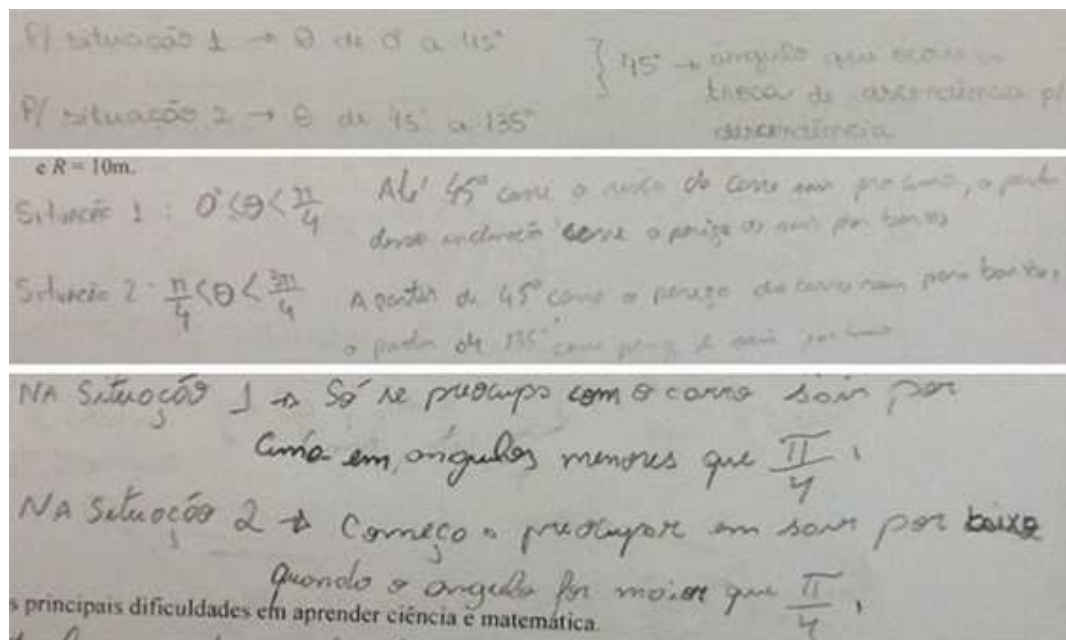 P/ situação 1 → θ de 0° a 45°
} 45° → ângulo que ocorre a
troca de ascendência p/
descendência
P/ situação 2 → θ de 45° a 135°
e R = 10m.
Situação 1 : 0°≤θ<π/4
Até 45° corre o risco do carro sair por cima, a partir
dessa inclinação corre o perigo de sair por baixo
Situação 2 : π/4<θ<3π/4
A partir de 45° corre o perigo do carro sair para baixo,
a partir de 135° corre perigo de sair por
NA Situação 1 → Só se preocupa com o carro sair por
cima em ângulos menores que π/4,
NA Situação 2 → Começo a preocupar em sair por baixo
quando o angulo for maior que π/4,
s principais dificuldades em aprender ciência e matemática.